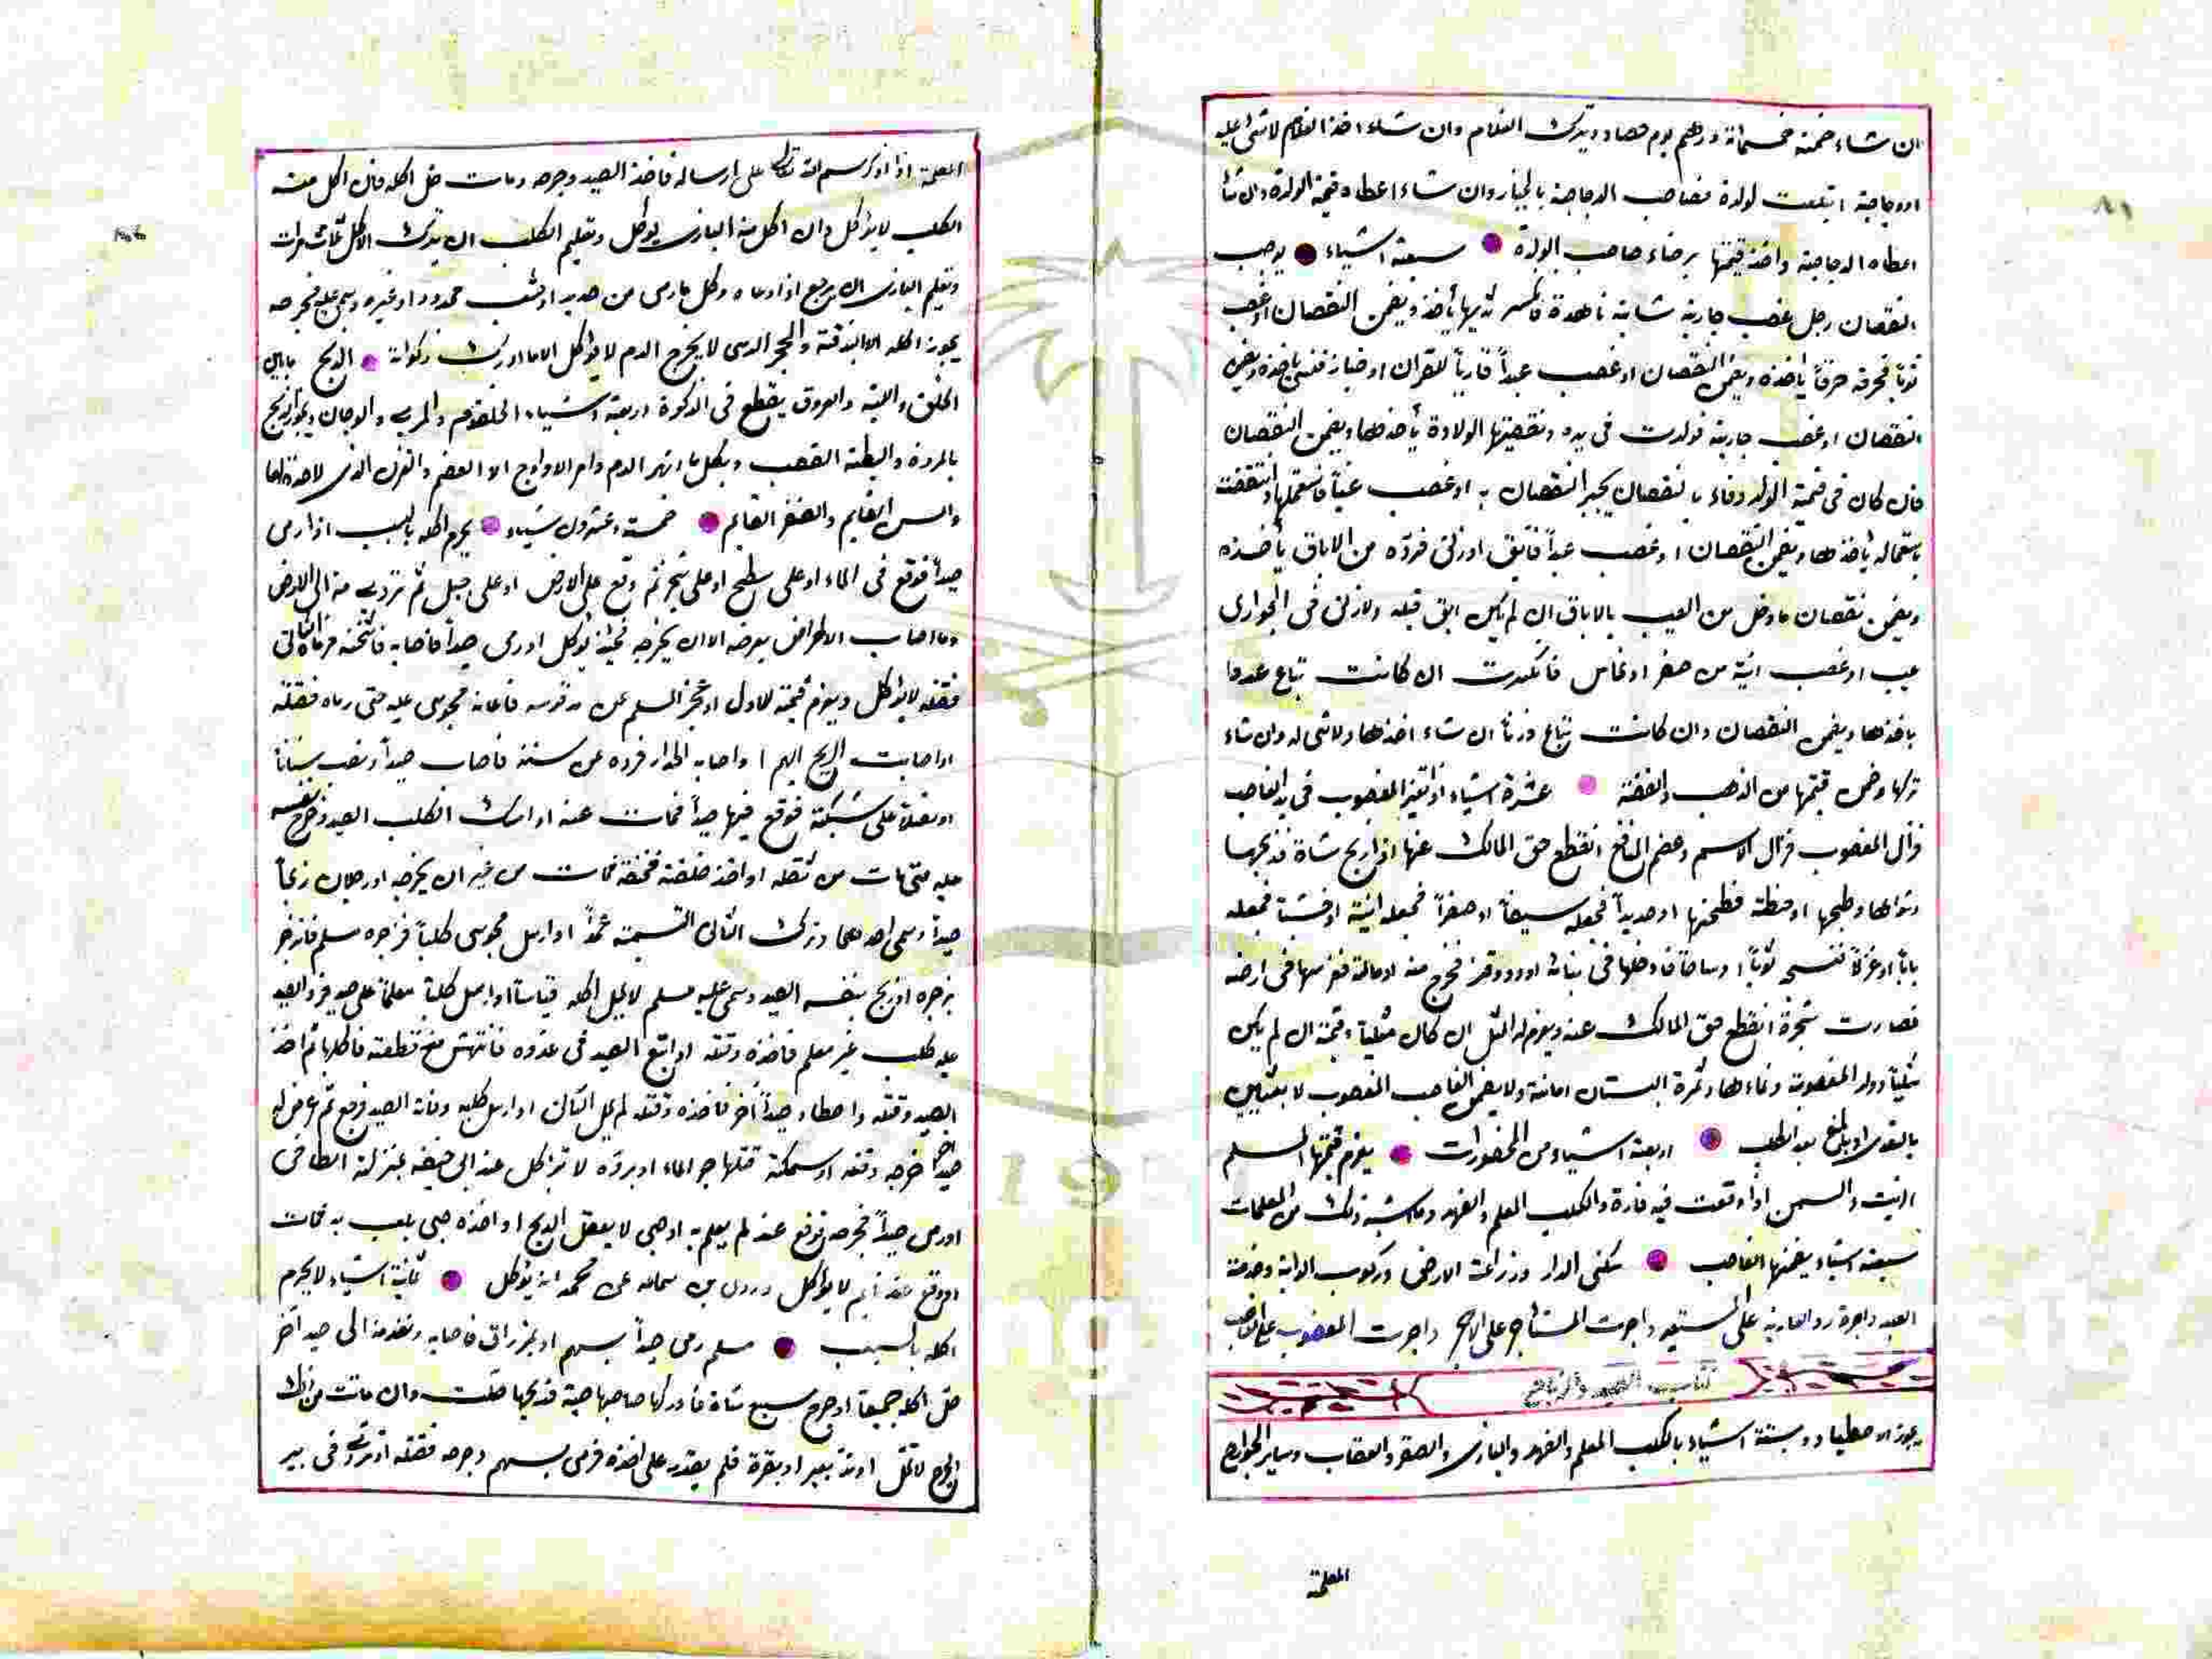 ان شاء ضمنه خمسمائة درهم يوم حصاد ويترك الغلام وان شاء اخذ الغلام لا شئ عليه
اودجاجة ابتلعت لولوة فصاحب الدجاجة بالخيار وان شاء اعطاه قيمة الولوة وان شا
اعطاه الدجاجة واخذ قيمتها برضاء صاحب الولوة سبعة اشياء يوجب
النقصان رجل غصب جارية شابة ناهدة فانكسر ثديها يأخذ ويضمن النقصان او غصب
ثوبا فخرقه خرقاً ياخذه ويضمن النقصان او غصب عبداً قارياً للقران او خباز فنسى ياخذه ويضمن
النقصان او غصب جارية فولدت فى يده ونقصتها الولادة يأخذها ويضمن النقصان
فان كان فى قيمة الولد وفاء بالنقصان يجبر النقصان به او غصب عيناً فاستعملها وانتقصت
باستعماله يأخذها ويضمن النقصان او غصب عبداً فابق او زنى فردّه من الاباق يأخذه
ويضمن نقصان ما دخل من العيب بالاباق ان لم يكن ابق قبله ولا زنى فى الجوارى
عيب او غصب انية من صفر او نحاس فانكسرت ان كانت تباع عددا
ياخذها ويضمن النقصان وان كانت تباع وزناً ان شاء اخذها ولا شئ له وان شاء
تركها وضمن قيمتها من الذهب والفضة عشرة اشياء اذا تغير المغصوب فى يد الغاصب
فزال المغصوب فزال الاسم وعظم المنافع انقطع حق المالك عنها اذا ذبح شاة فذبحها
وشواها وطبخها او حنطة فطحنها او حديداً فجعله سيفاً او صفراً فجعله انية او خشباً فجعله
باباً او غزلا فنسجه ثوباً او ساجة فادخلها فى بنائه او دود قز فخرج منه او تالة فغرسها فى ارضه
فصارت شجرة انقطع حق المالك عنه ويغرم له المثل ان كان مثلياً وقيمته ان لم يكن
مثلياً وولد المغصوبة ونماءها وثمرة البستان امانة ولا يضمن الغاصب المغصوب لا بشيئين
بالتعدى او بالمنع بعد الطلب اربعة اشياء من المحضورات يغرم قيمتها المسلم
الزيت والسمن اذا وقعت فيه فارة والكلب المعلم والفهد وما اشبه ذلك من المعلمات
سبعة اشياء يضمنها الغاصب سكنى الدار وزراعة الارض وركوب الدابة وخدمة
العبد واجرة رد العارية على المستعير واجرت المستأجر على الاجر واجرت المغصوب على الغاصب
كتاب الصيد والذبايح
يجوز الاصطياد وبستة اشياء بالكلب المعلم والفهد والبازى والصقر والعقاب وساير الجوارح
المعلمة
المعلمة اذا ذكر اسم الله تعالى على ارساله فاخذ الصيد وجرحه ومات حل اكله فان اكل منه
الكلب لا يؤكل وان اكل منه البازى يؤكل وتعليم الكلب ان يترك الاكل ثلاث مرات
وتعليم البازى ان يرجع اذا دعاه وكل ما رمى من حديد او خشب محدود او غيره وسمى عليه فجرحه
يجوز اكله الا البندقة والحجر الذى لا يخرج الدم لا يؤكل الا ما ادركت ذكوته الذبح ما بين
الحلق واللبة والعروق يقطع فى الذكوة اربعة اشياء الحلقوم والمرى والودجان ويجوز الذبح
بالمروة والبطة القصب وبكل ما انهر الدم وامر الاوداج الا العضم والقرن الذى لا حدة لها
والسن القايم والضفر القايم خمسة وعشرون شياء يحرم اكله بالسبب اذا رمى
صيداً فوقع فى الماء او على سطح او على شجر ثم وقع على الارض او على جبل ثم تردى منه الى الارض
وما اصاب المعراض بعرضه الا ان يجرحه فحينئذ يؤكل او رمى صيداً فاصابه فاثخنه فرماه الثانى
فقتله لا يؤكل ويغرم قيمته للاول او عجز المسلم عن مد قوسه فاعانه مجوسى عليه حتى رماه فقتله
او اصابت الريح السهم او اصابه الجدار فرده عن سننه فاصاب صيداً ونصب سناناً
او نصلا على شبكة فوقع فيها صيداً فمات عنه او امسك الكلب الصيد وطرح نفسه
عليه حتى مات من ثقله او اخذ حلقه فخنقه فمات من غير ان يجرحه او رجلان رميا
صيداً وسمى احدهما وترك الثانى التسمية عمداً او ارسل مجوسى كلباً فزجره مسلم فانزجر
بزجره او ذبح بنفسه الصيد وسمى عليه مسلم لا يحل اكله قياسا او ارسل كلباً معلماً على صيد فرد الصيد
عليه كلب غير معلم فاخذه وقتله او اتبع الصيد فى عدوه فانتهش منه قطعة فاكلها ثم اخذ
الصيد وقتله واصطاد صيداً آخر فاخذه وقتله لم يحل الثانى او ارسل كلبه وفاته الصيد فرجع ثم عرض له
صيداً آخر جرحه وقتله او سمكة قتلها حر الماء او برده لا تؤكل عند ابى حنيفة بمنزلة الطافى
او رمى صيداً فجرحه فوقع عند لم يعلم به او صبى لا يعقل الذبح او اخذه صبى يلعب به فمات
او وقع عند نايم لا يؤكل وروى بن سماعه عن محمد انه يؤكل ثمانية اشياء لا يحرم
اكله بالسبب مسلم رمى صيداً بسهم او بمزراق فاصابه ونفذ منه الى صيد آخر
حل اكله جميعا او جرح سبع شاة فادركها صاحبها حية فذبحها حلت وان ماتت من ذلك
الجرح لا تحل او ندّ بعير او بقرة فلم يقدر على اخذه فرمى بسهم وجرحه فقتله او تردى فى بير